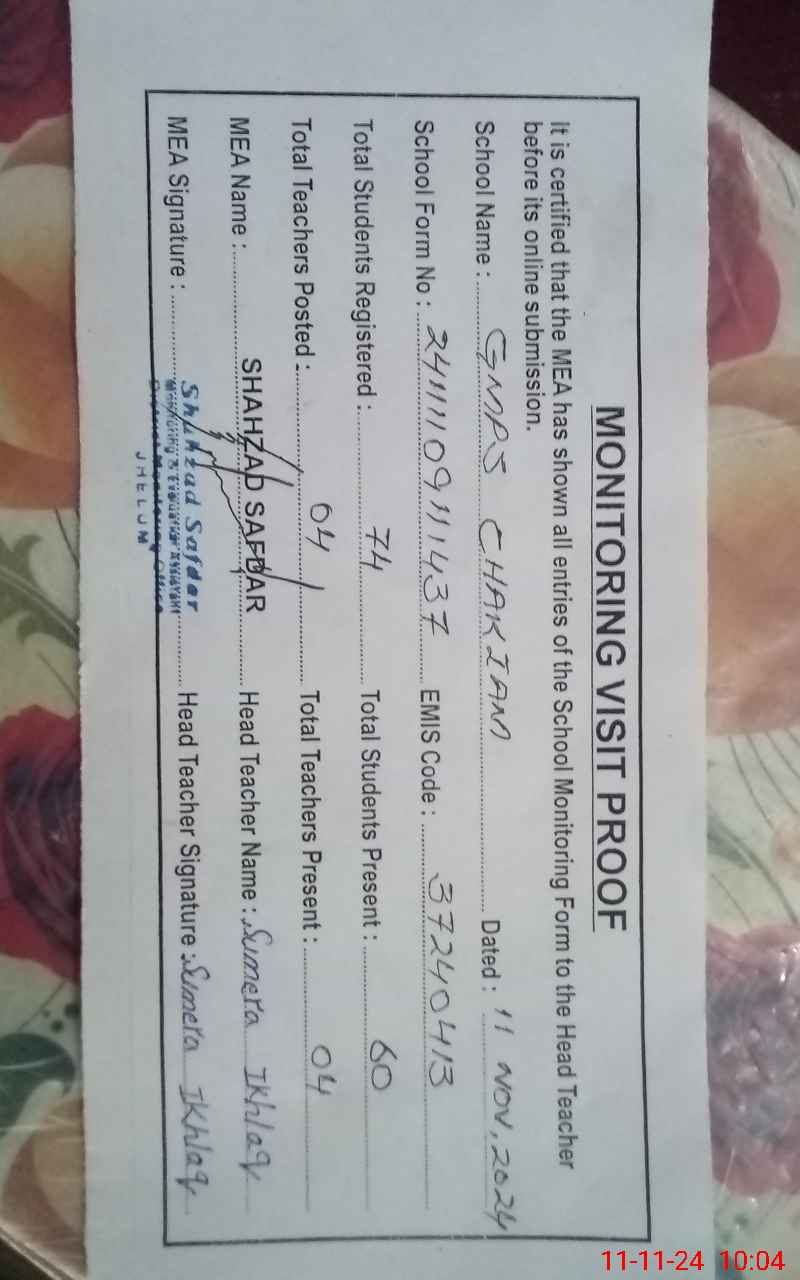 MONITORING VISIT PROOF
It is certified that the MEA has shown all entries of the School Monitoring Form to the Head Teacher
before its online submission.
School Name : GMPS CHAKIAM Dated : 11 NOV, 2024
School Form No : EMIS Code : 37240413
Total Students Registered : 74 Total Students Present : 60
Total Teachers Posted : 04 Total Teachers Present : 04
MEA Name : SHAHZAD SAFDAR Head Teacher Name : Sumera Ikhlaq
MEA Signature : Head Teacher Signature : Sumera Ikhlaq
Shahzad Safdar
Monitoring & Evaluation Assistant
District Monitoring Office
JHELUM
11-11-24 10:04